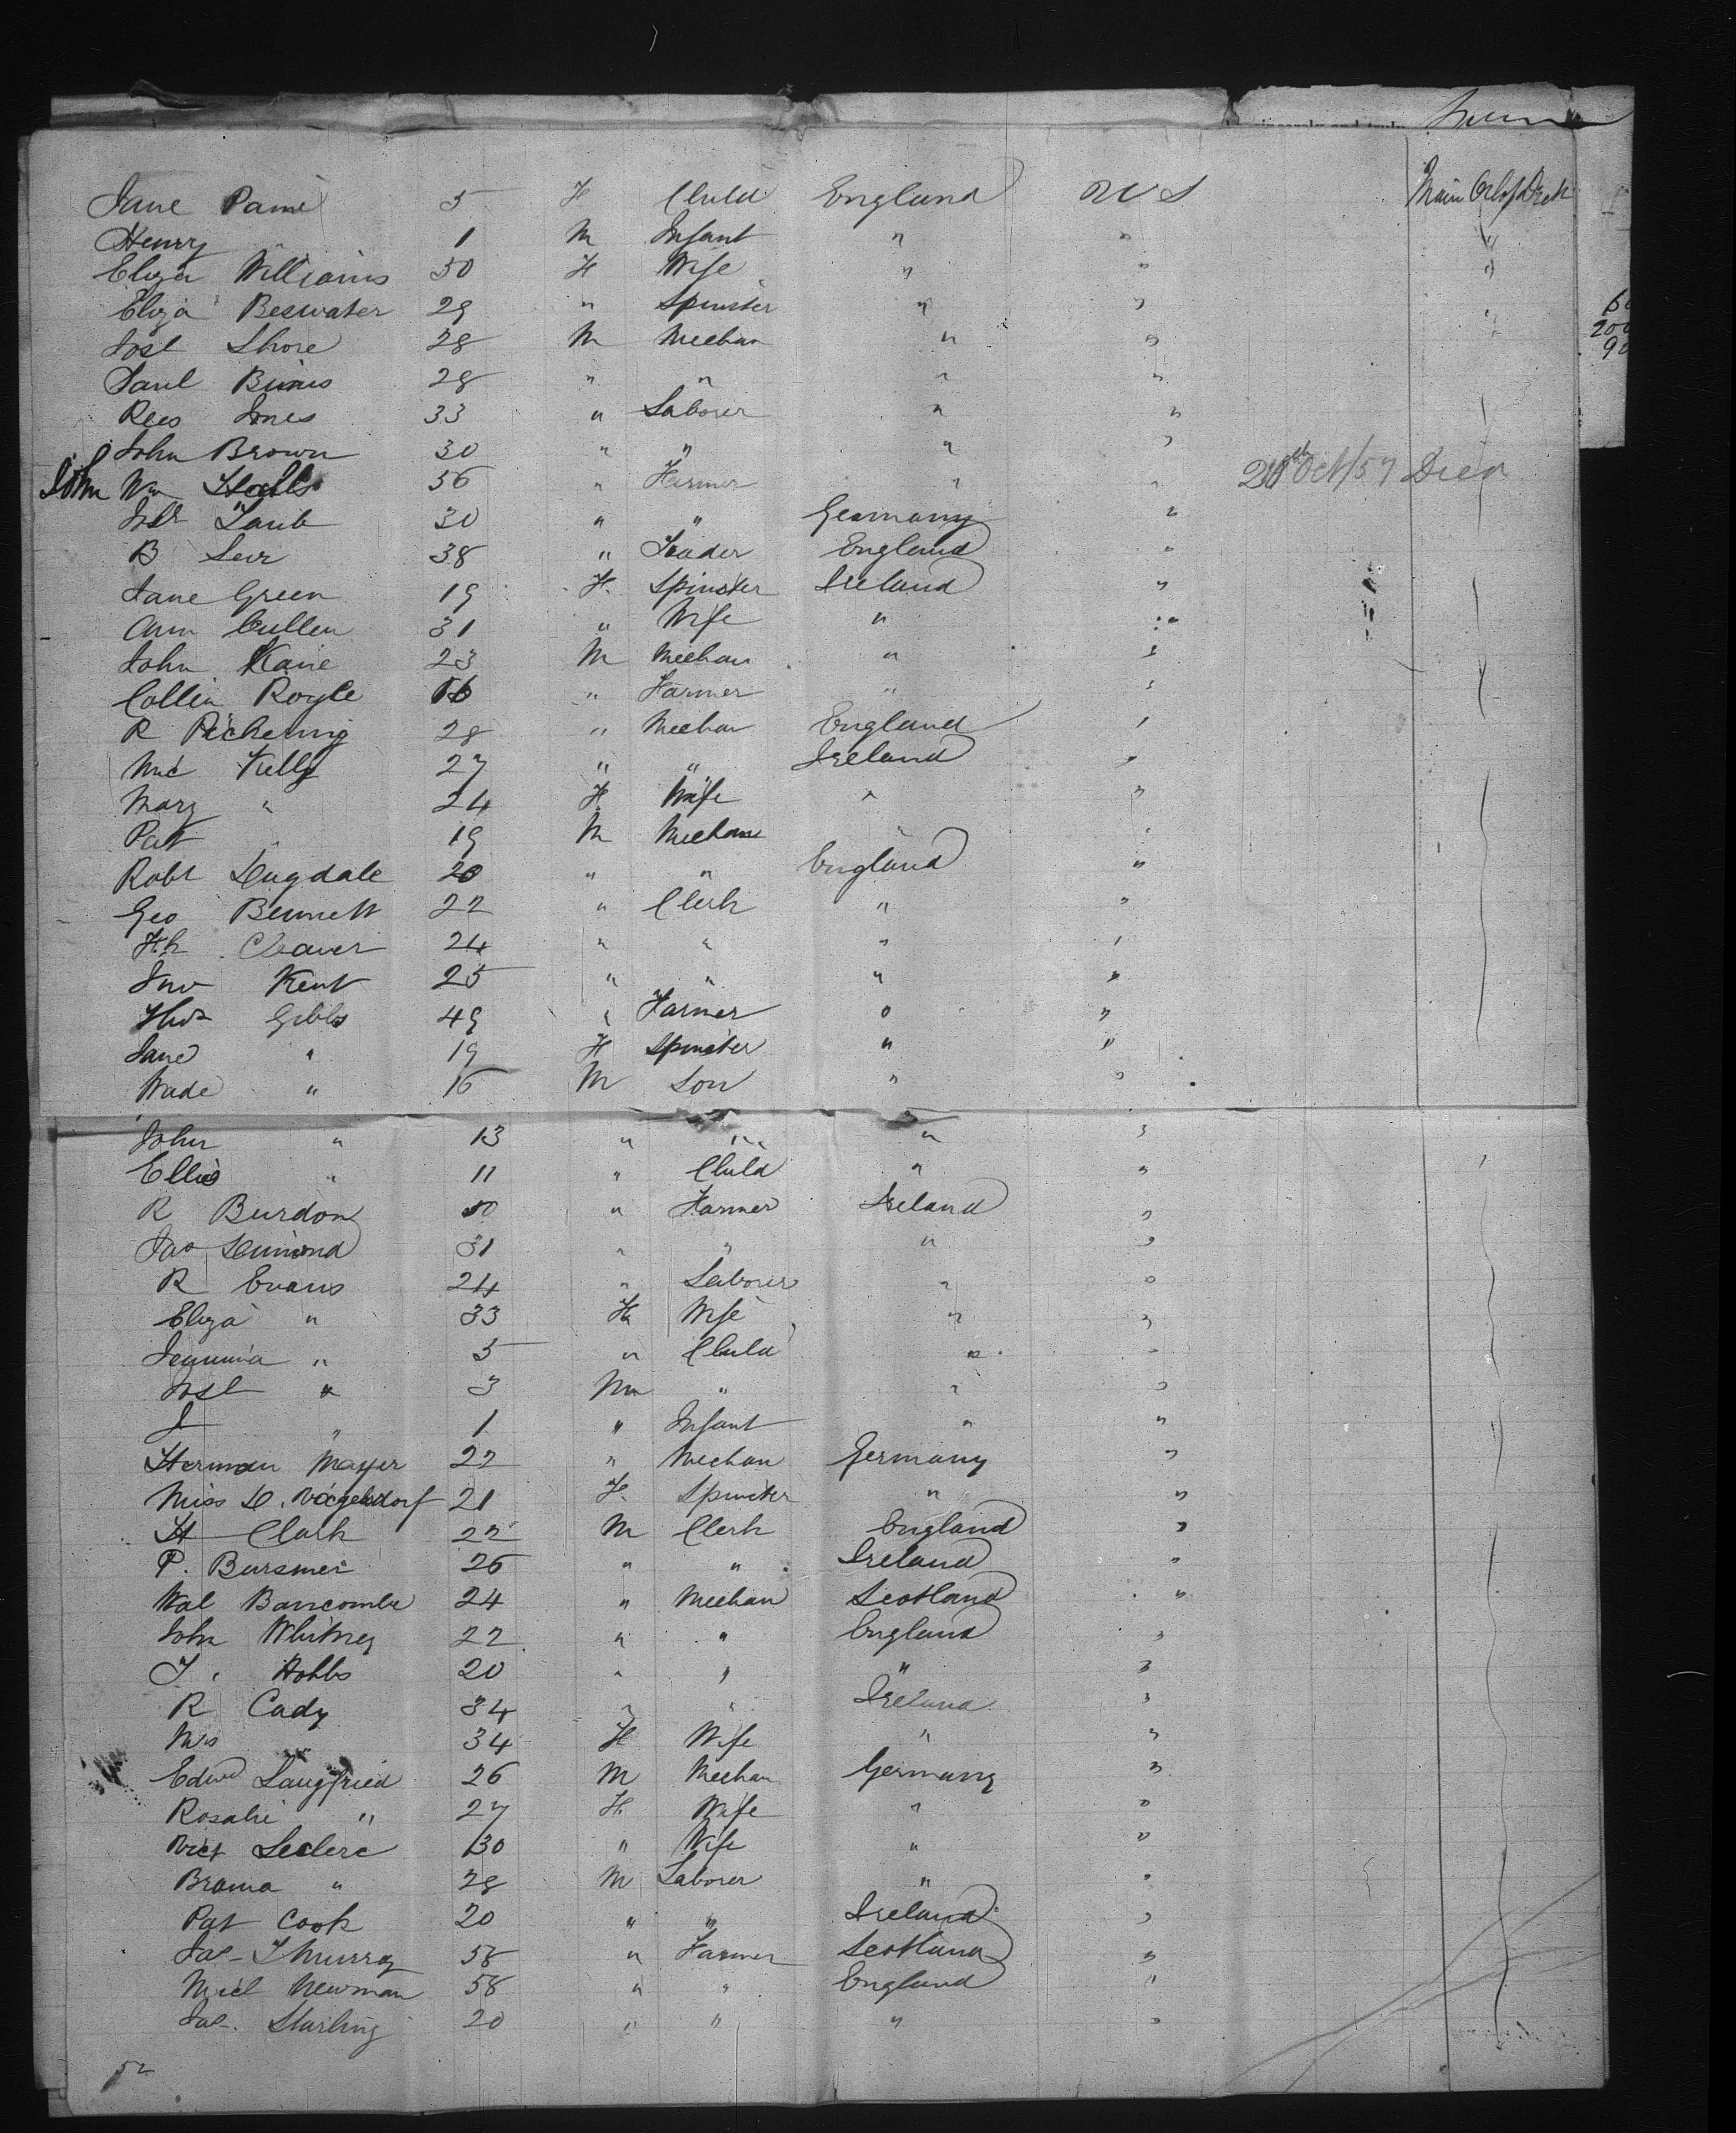 Jane Paine 5 F Child England U S Main Orlop Deck
Henry 1 M Infant " " "
Eliza Williams 30 F Wife " " "
Eliza Beswater 29 " Spinster " " "
Josh Shore 28 M Mechan " "
Saml Binns 28 " " " "
Rees Jones 33 " Laborer " "
John Brown 30 " " " "
John Wm Halls 36 " Farmer " " Oct/57 Died
Taub 30 " " Germany "
B 38 " England "
Jane Green 19 F Spinster Ireland "
Ann Cullen 31 " Wife " "
John Kane 23 M Mechan " "
Collin Royle 16 " Farmer " "
R Pickering 28 " Mechan England "
Mic Kelly 27 " " Ireland "
Mary " 24 F Wife " "
Pat " 19 M Mechan " "
Robt Dugdale 20 " " England "
Geo Bennett 22 " Clerk " "
Cleaver 24 " " " "
Jno Kent 25 " " " "
Thos Gibbs 49 " Farmer " "
Jane " 19 F Spinster " "
Wade " 16 M Son " "
John " 13 " " " "
Ellis " 11 " Child " "
R Burdon 50 " Farmer Ireland "
Jas Desmond 31 " " " "
R Evans 24 " Laborer " "
Eliza " 33 F Wife " "
Jemima " 5 " Child " "
Josh " 3 M " " "
J " 1 " Infant " "
Herman Mayer 22 " Mechan Germany "
Miss D. Vogelsdorf 21 F. Spinster " "
H Clark 22 M Clerk England "
P. 26 " " Ireland "
Wal Bancombe 24 " Mechan Scotland "
John Whitney 22 " " England "
T. Hobbs 20 " " " "
R Cady 34 " " Ireland "
Mrs " 34 F Wife " "
Edwd Langfried 26 M Mechan Germany "
Rosalie " 27 F. Wife " "
Vict Leclerc 30 " Wife " "
Brama " 28 M Laborer " "
Pat Cook 20 " " Ireland "
Jas Thurray 58 " Farmer Scotland "
Micl Newman 58 " " England "
Jas. Starling 20 " " " "
52